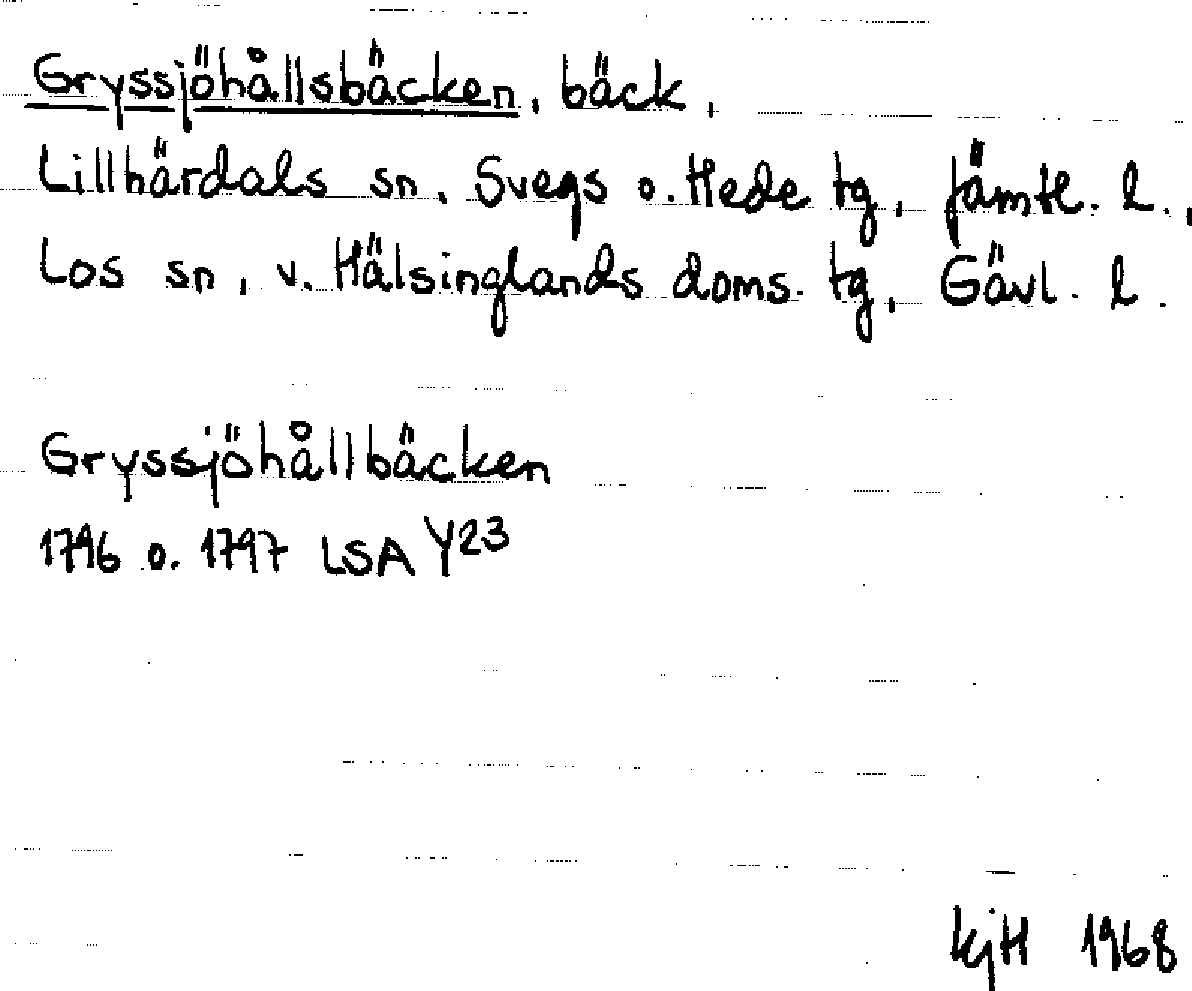 Gryssjöhållsbäcken, bäck,
Lillhärdals sn, Svegs o. Hede tg, Jämtl. l.,
Los sn, v. Hälsinglands doms. tg, Gävl. l.
Gryssjöhållbäcken
1796 o. 1797 LSA Y23
KjH 1968